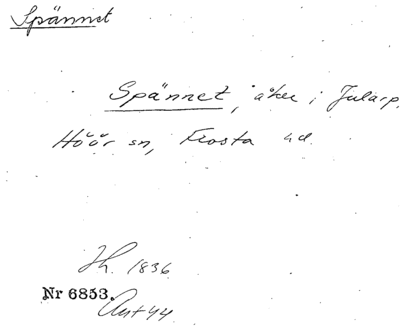 Spännet
Spännet, åker i Jularp,
Höör sn, Frosta hd.
Jh. 1836
Nr 6853.
Ant 44